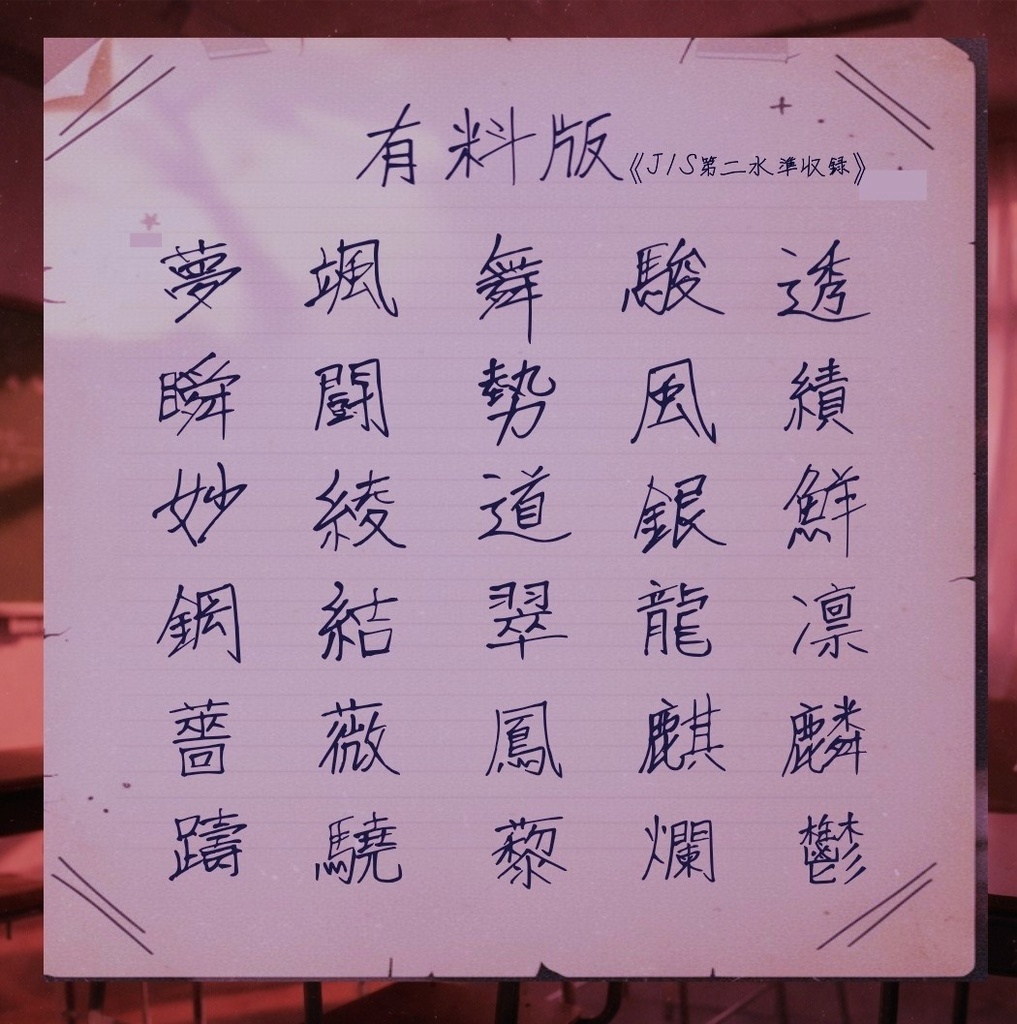 有料版《JIS第二水準収録》
夢 颯 舞 駿 透
瞬 闘 勢 風 績
妙 綾 道 銀 鮮
鋼 結 翠 龍 凛
薔 薇 鳳 麒 麟
躊 驍 藜 爛 鬱